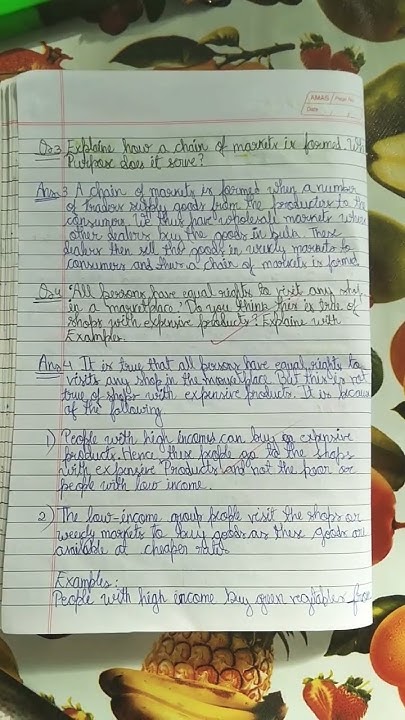 AMAR Page No.
Date
Qs3 Explaine how a chain of markets is formed. Wh
Purpose does it serve?
Ans3 A chain of markets is formed when a number
of traders supply goods from the producters to the
consumers. We thus have wholesale markets where
other dealers buy the goods in bulk. These
dealers then sell the goods in weekly markets to
consumers and thus a chain of markets is formed
Qs4 "All persons have equal rights to visit any shop
in a marketplace." Do you think this is true of
shops with expensive products? Explaine with
Examples.
Ans4 It is true that all persons have equal rights to
visits any shop in the marketplace. But this is not
true of shops with expensive products. It is because
of the following
1) People with high incomes can buy expensive
products. Hence these people go to the shops
with expensive Products and not the poor or
people with low income.
2) The low-income group people visit the shops or
weekly markets to buy goods as these goods are
available at cheaper rates
Examples:
People with high income buy green from